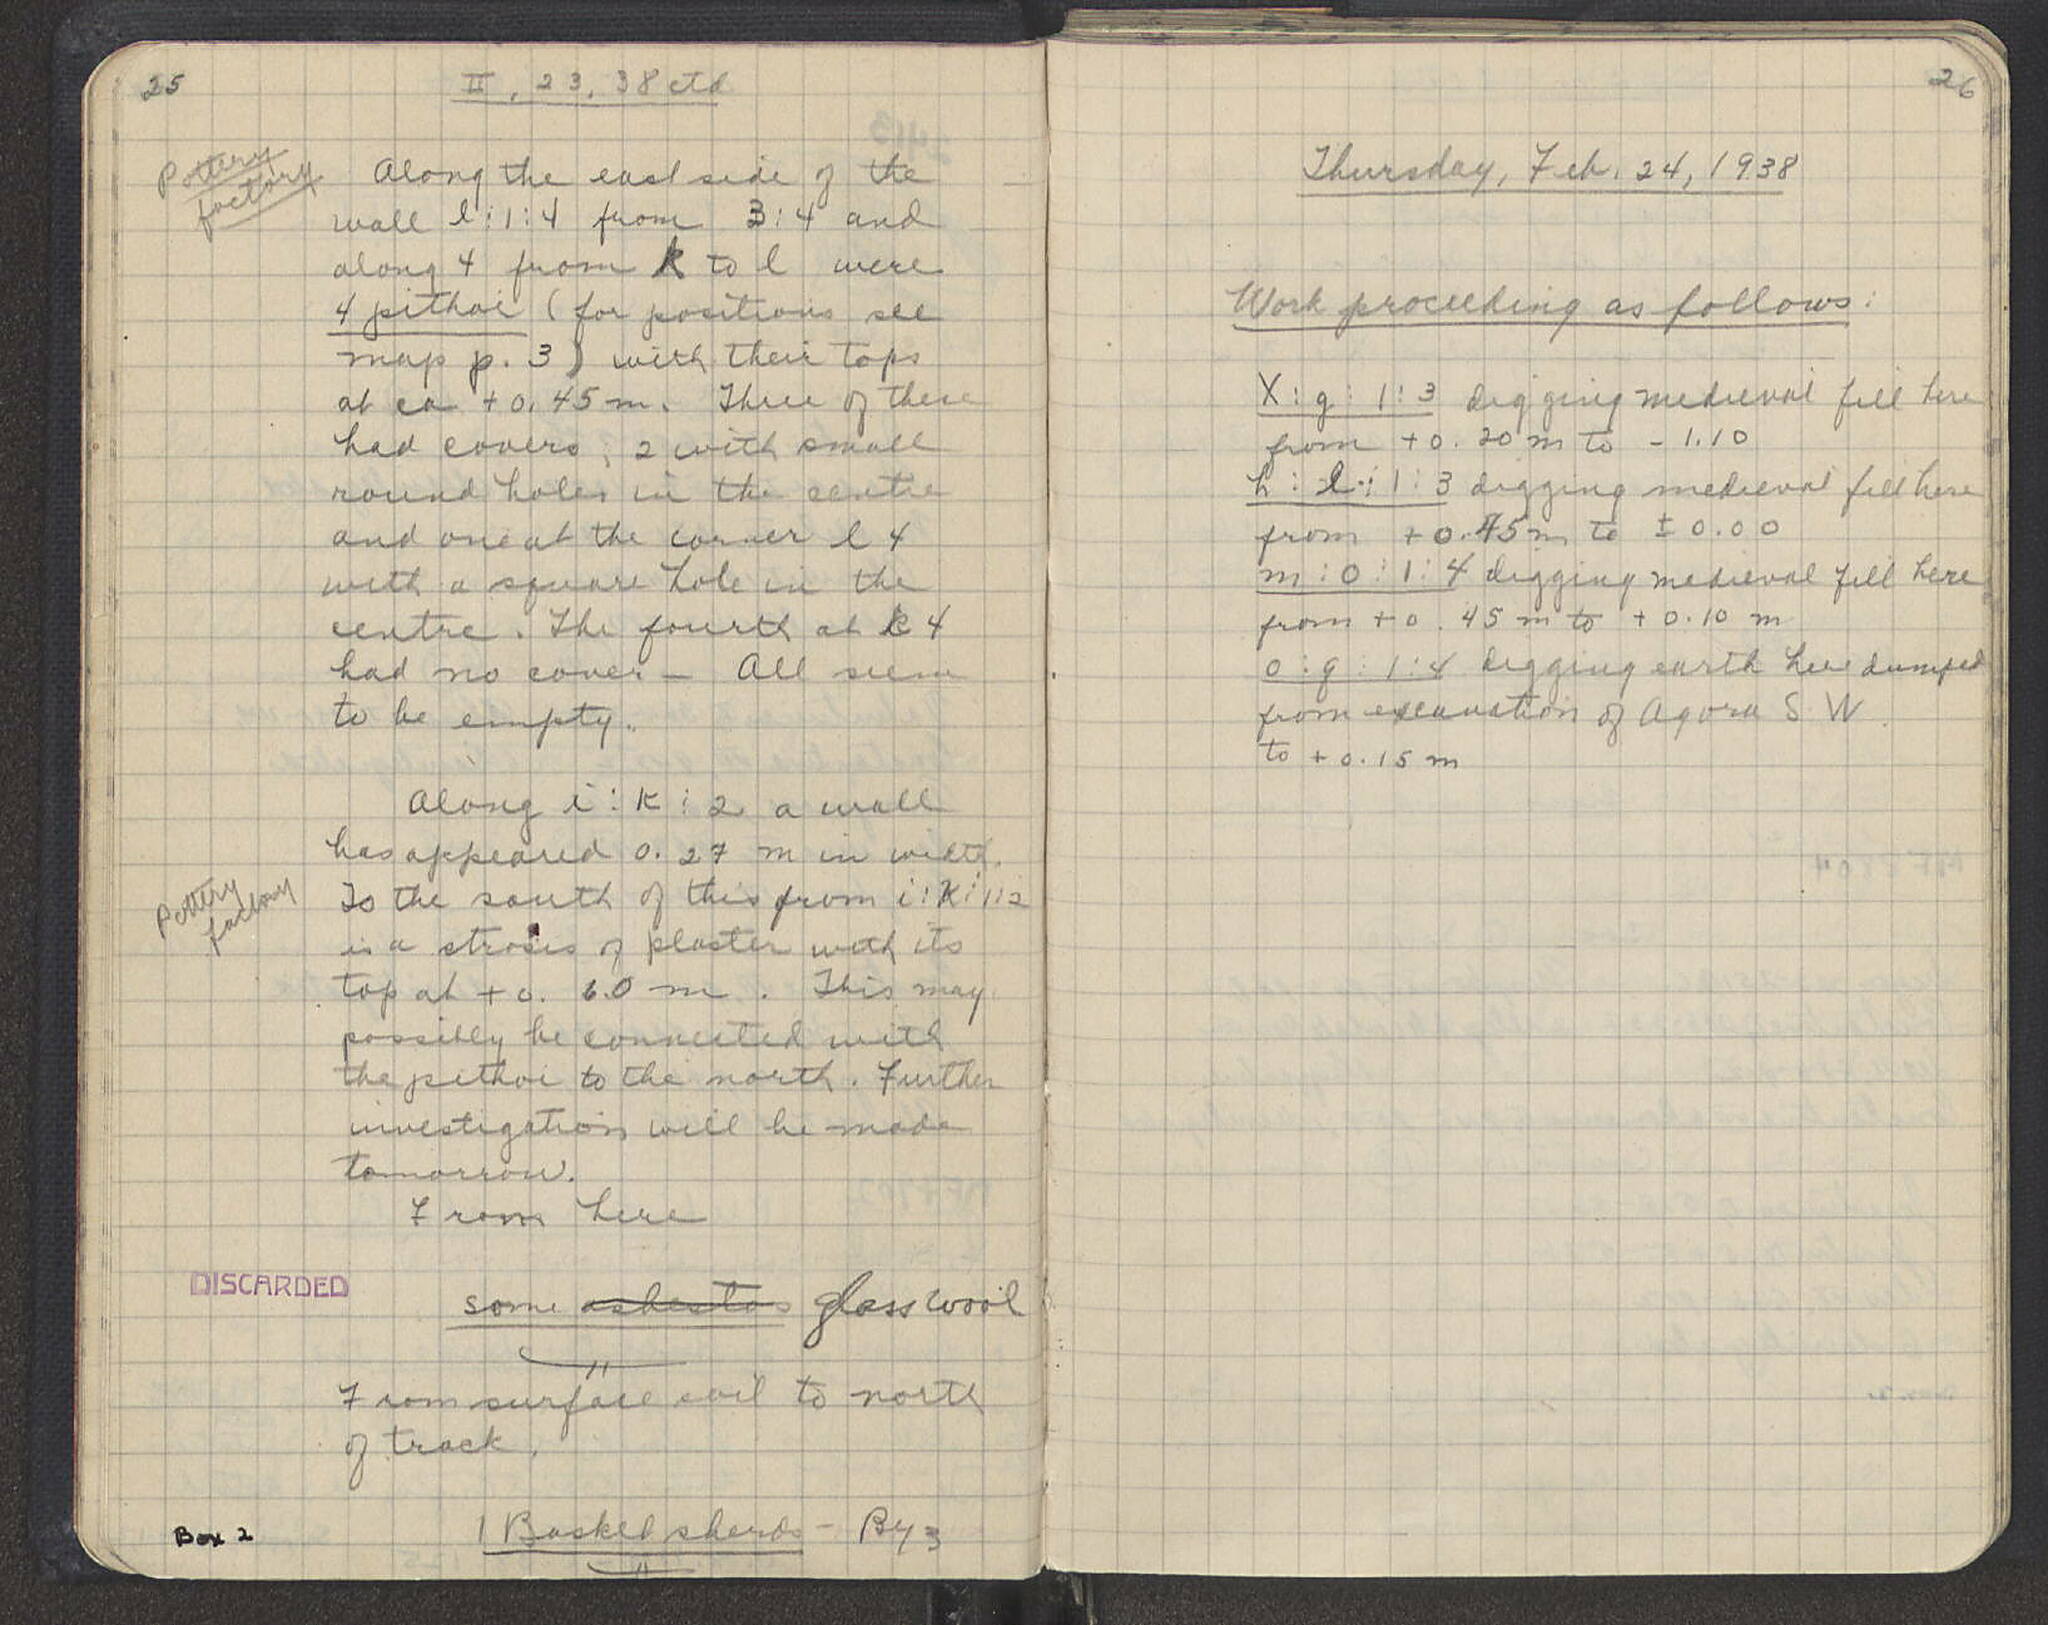 25
II, 23, 38 ctd
Pottery
factory
Along the east side of the
wall l:1:4 from 3:4 and
along 4 from k to l were
4 pithoi (for positions see
map p. 3) with their tops
at ca +0.45 m. Three of these
had covers; 2 with small
round holes in the centre
and one at the corner l 4
with a square hole in the
centre. The fourth at k 4
had no cover - All seem
to be empty.
Along i:k:2 a wall
has appeared 0.27 m in width.
Pottery
factory
To the south of this from i:k:1:2
is a strosis of plaster with its
top at +0.60 m. This may
possibly be connected with
the pithoi to the north. Further
investigation will be made
tomorrow.
From here
DISCARDED
some asbestos glass wool
From surface soil to north
of track.
Box 2
1 Basket sherds - By 3
26
Thursday, Feb. 24, 1938
Work proceeding as follows:
X:g:1:3 digging medieval fill here
from +0.20 m to -1.10
h:l:1:3 digging medieval fill here
from +0.45 m to ±0.00
m:o:1:4 digging medieval fill here
from +0.45 m to +0.10 m
o:q:1:4 digging earth here dumped
from excavation of Agora S W
to +0.15 m